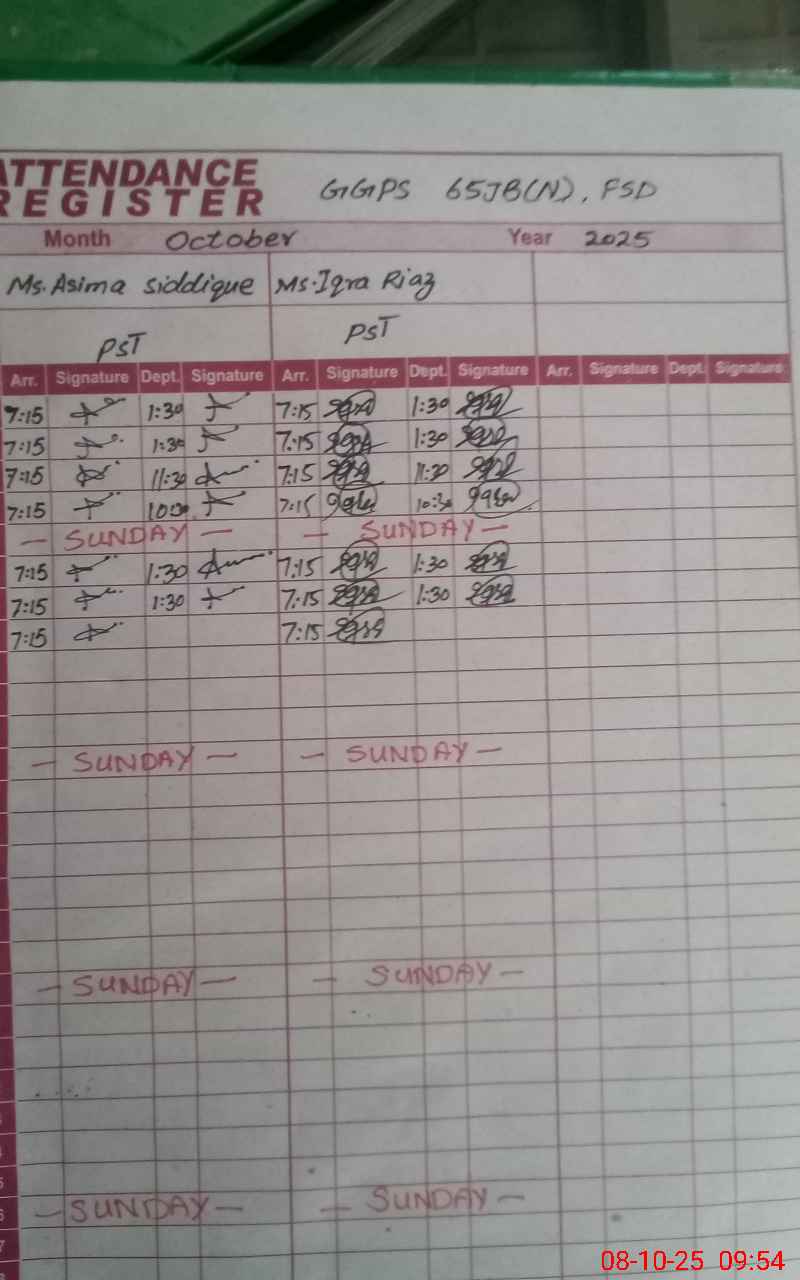 ATTENDANCE
REGISTER
GGPS 65JB(N), FSD
Month October Year 2025
Ms. Asima Siddique Ms. Iqra Riaz
PST PST
Arr. Signature Dept. Signature Arr. Signature Dept. Signature Arr. Signature Dept. Signature
7:15 1:30 7:15 1:30
7:15 1:30 7:15 1:30
7:15 11:30 7:15 11:30
7:15 7:15 10:30
- SUNDAY - - SUNDAY -
7:15 1:30 7:15 1:30
7:15 1:30 7:15 1:30
7:15 7:15
- SUNDAY - - SUNDAY -
- SUNDAY - - SUNDAY -
- SUNDAY - - SUNDAY -
08-10-25 09:54